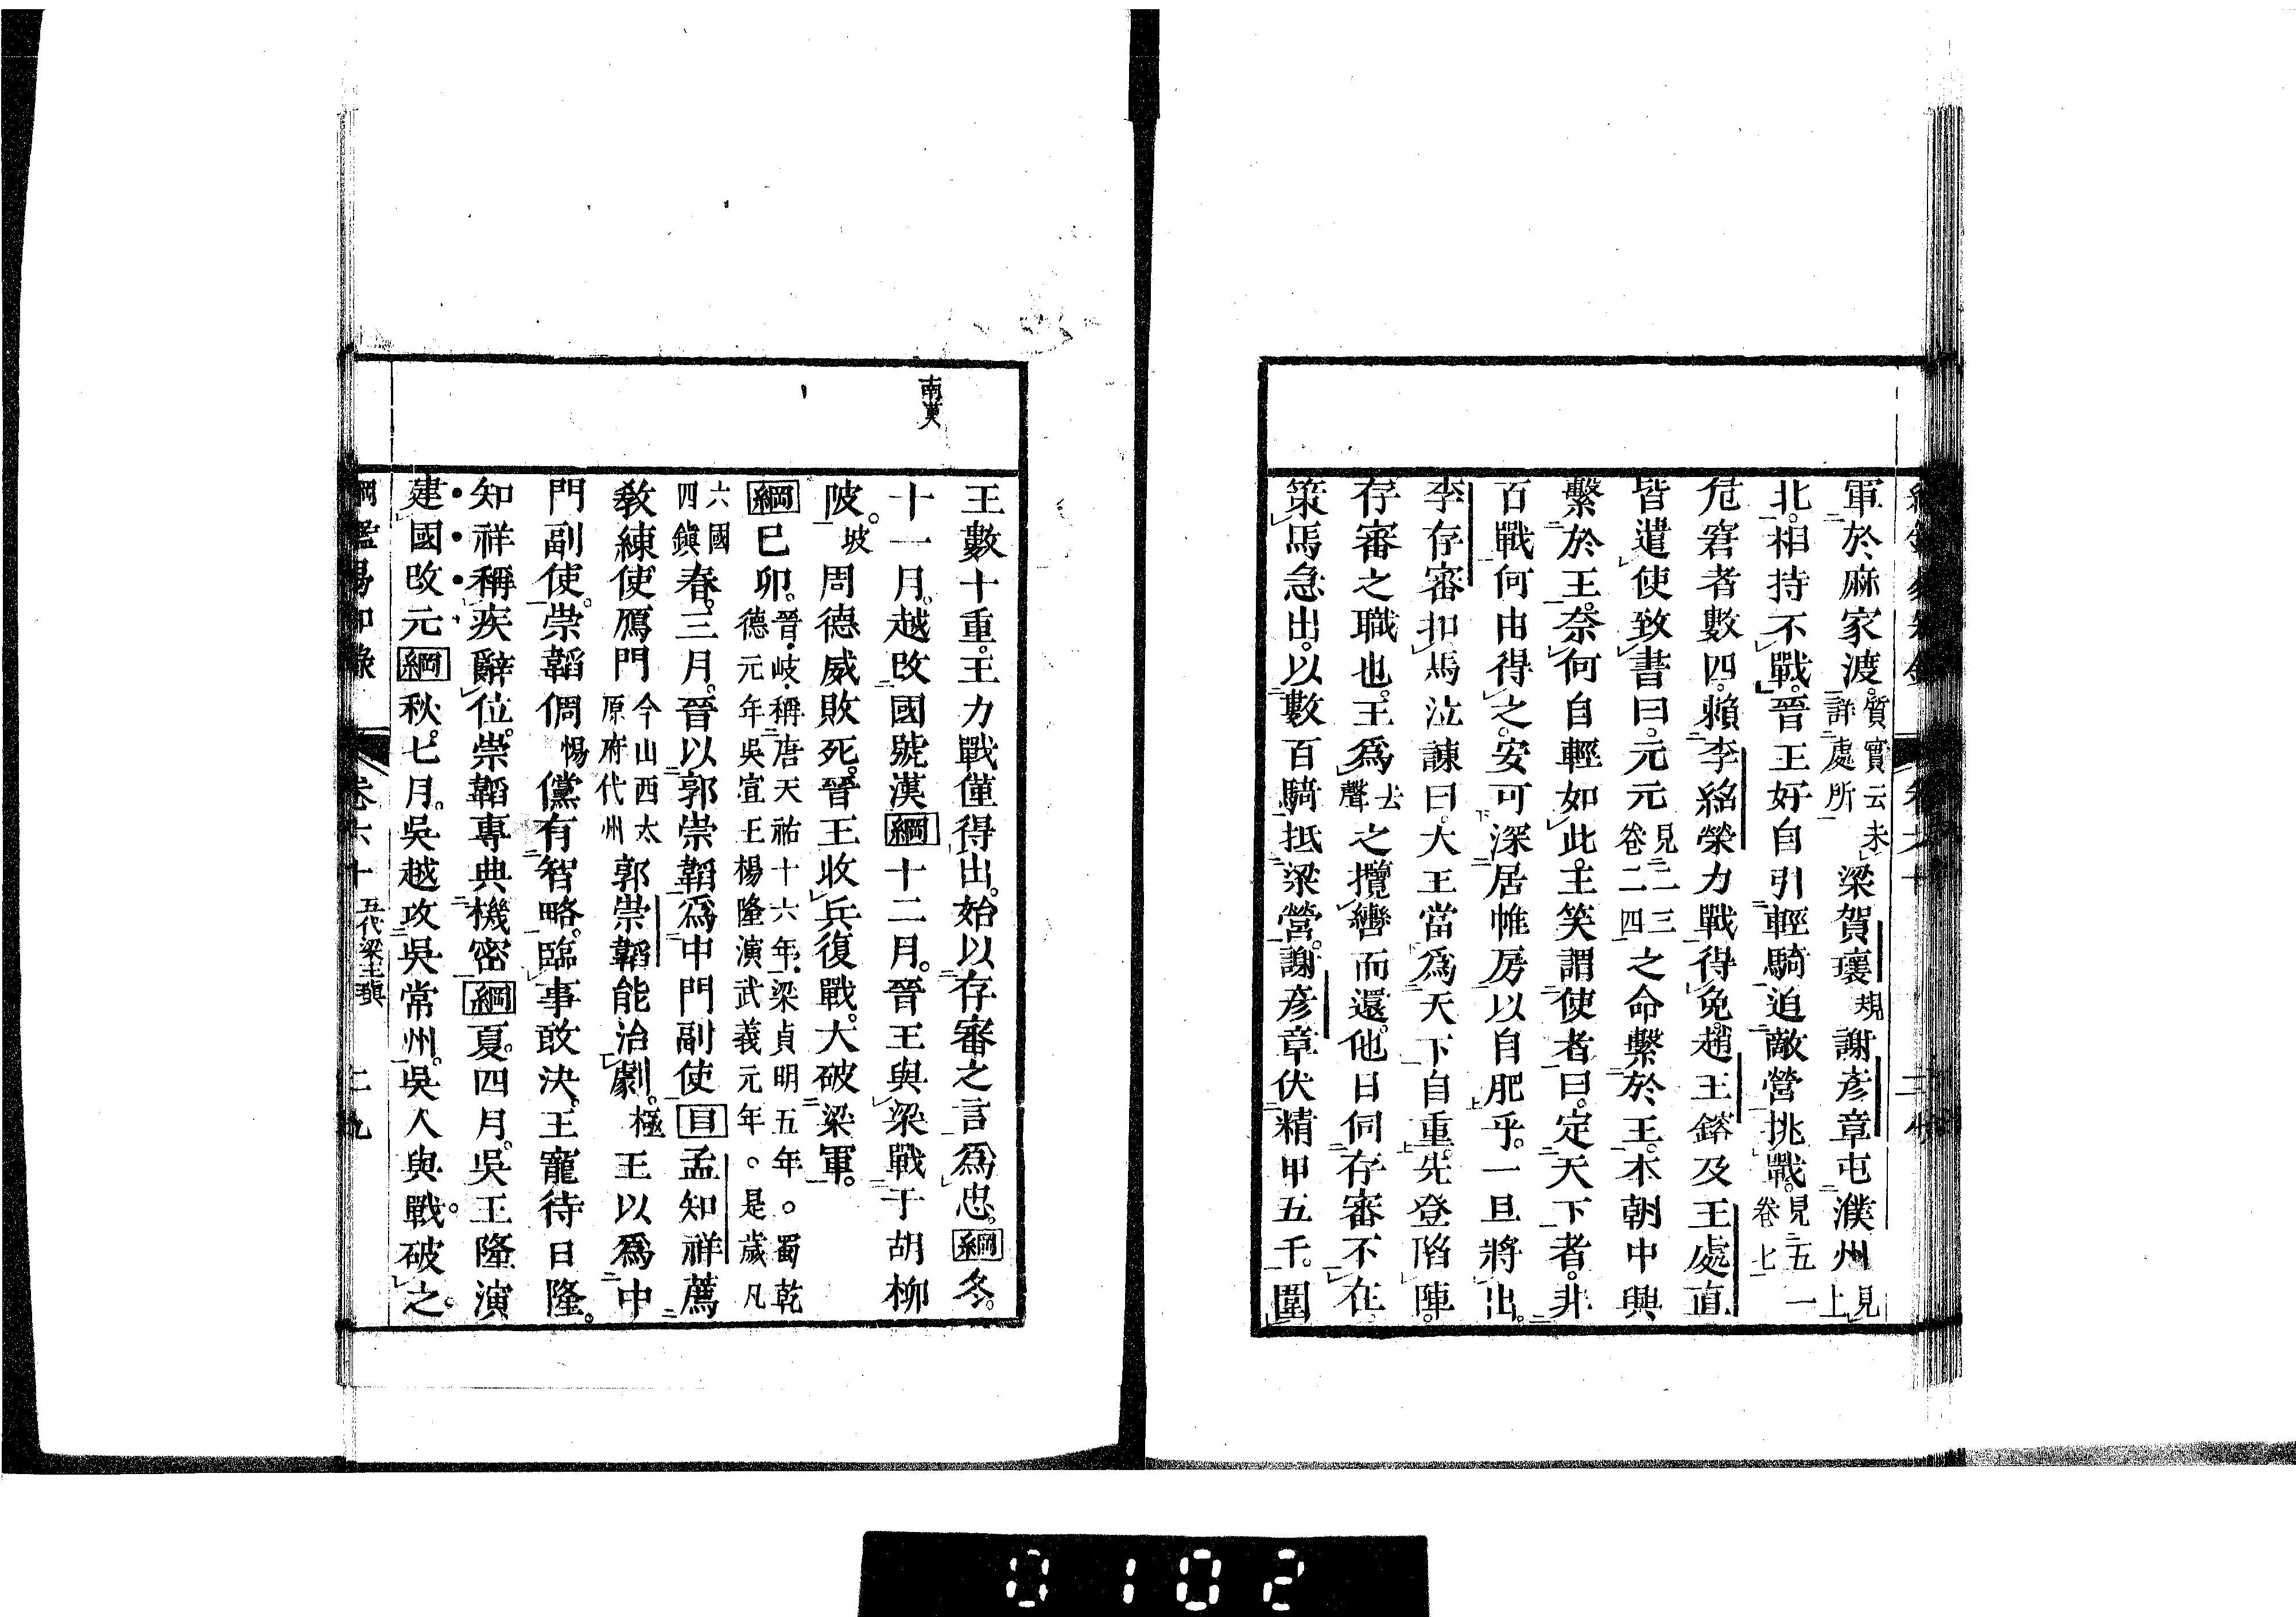 軍於麻家渡。質實云未詳處所梁賀瓌規謝彥章屯濮州見上
北。相持不戰。晉王好自引輕騎迫敵營挑戰。見五一卷七
危窘者數四。賴李紹榮力戰得免。趙王鎔及王處直
皆遣使致書曰。元元見二三卷二四之命繫於王。本朝中興
繫於王。奈何自輕如此。主笑謂使者曰。定天下者。非
百戰何由得之。安可深居帷房以自肥乎。一旦將出。
李存審扣馬泣諫曰。大王當爲天下自重。先登陷陣。
存審之職也。王爲去聲之攬轡而還。他日伺存審不在。
策馬急出。以數百騎抵梁營。謝彥章伏精甲五千。圍
南漢
王數十重。王力戰僅得出。始以存審之言爲忠。綱冬。
十一月。越改國號漢綱十二月。晉王與梁戰于胡柳
陂。坡周德威敗死。晉王收兵復戰。大破梁軍。
綱己卯。晉・岐・稱唐天祐十六年・梁貞明五年。蜀乾德元年吳宣王楊隆演武義元年。是歲凡
六國四鎭春。三月。晉以郭崇韜爲中門副使目孟知祥薦
敎練使鴈門今山西太原府代州郭崇韜能治劇。極王以爲中
門副使。崇韜倜惕儻有智略。臨事敢決。王寵待日隆。
知祥稱疾辭位。崇韜專典機密綱夏。四月。吳王隆演
建國改元綱秋。七月。吳越攻吳常州。吳人與戰。破之。
綱鑑易知錄 卷六十 五代梁主瑱 二九